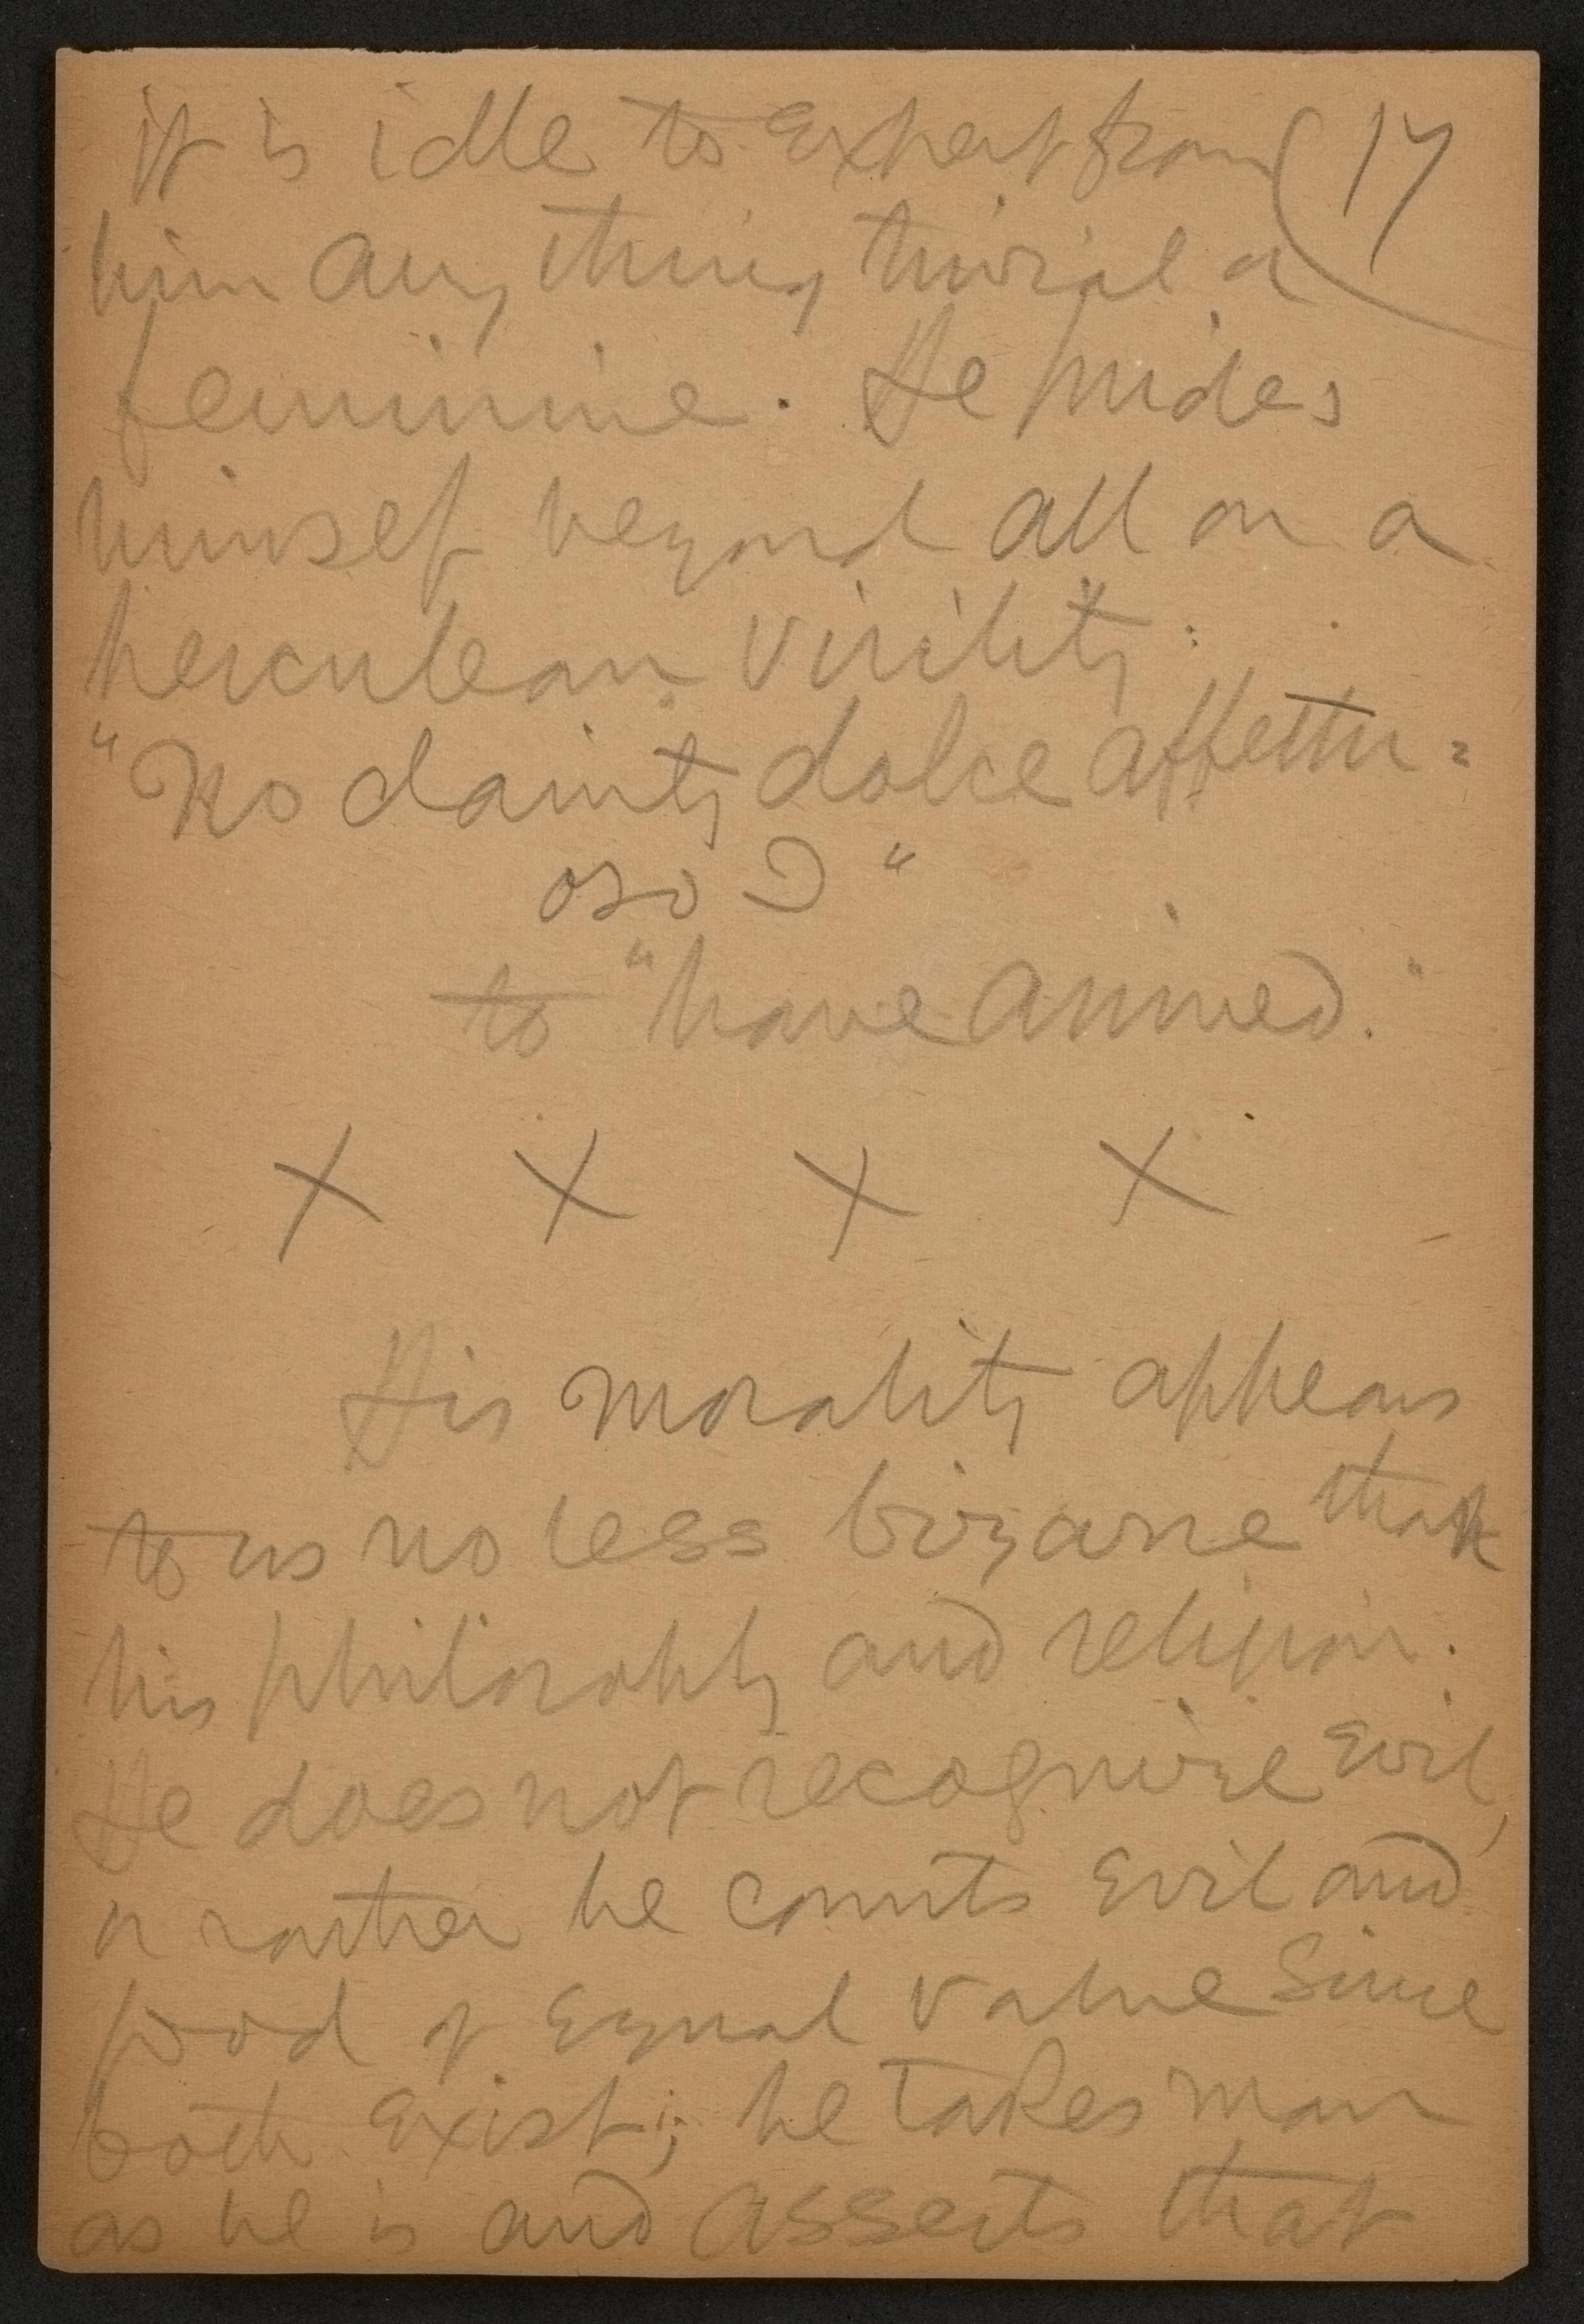 it is idle to expect from (17
him any thing trivial or
feminine. He prides
himself beyond all on a
herculean virility:
"No dainty dolce affettu=
oso I"
to "have aimed."
X X X X
His morality appears
to us no less bizarre than
his philosophy and religion.
He does not recognize Evil,
or rather he counts Evil and
good of Equal value since
both Exist; he takes man
as he is and asserts that